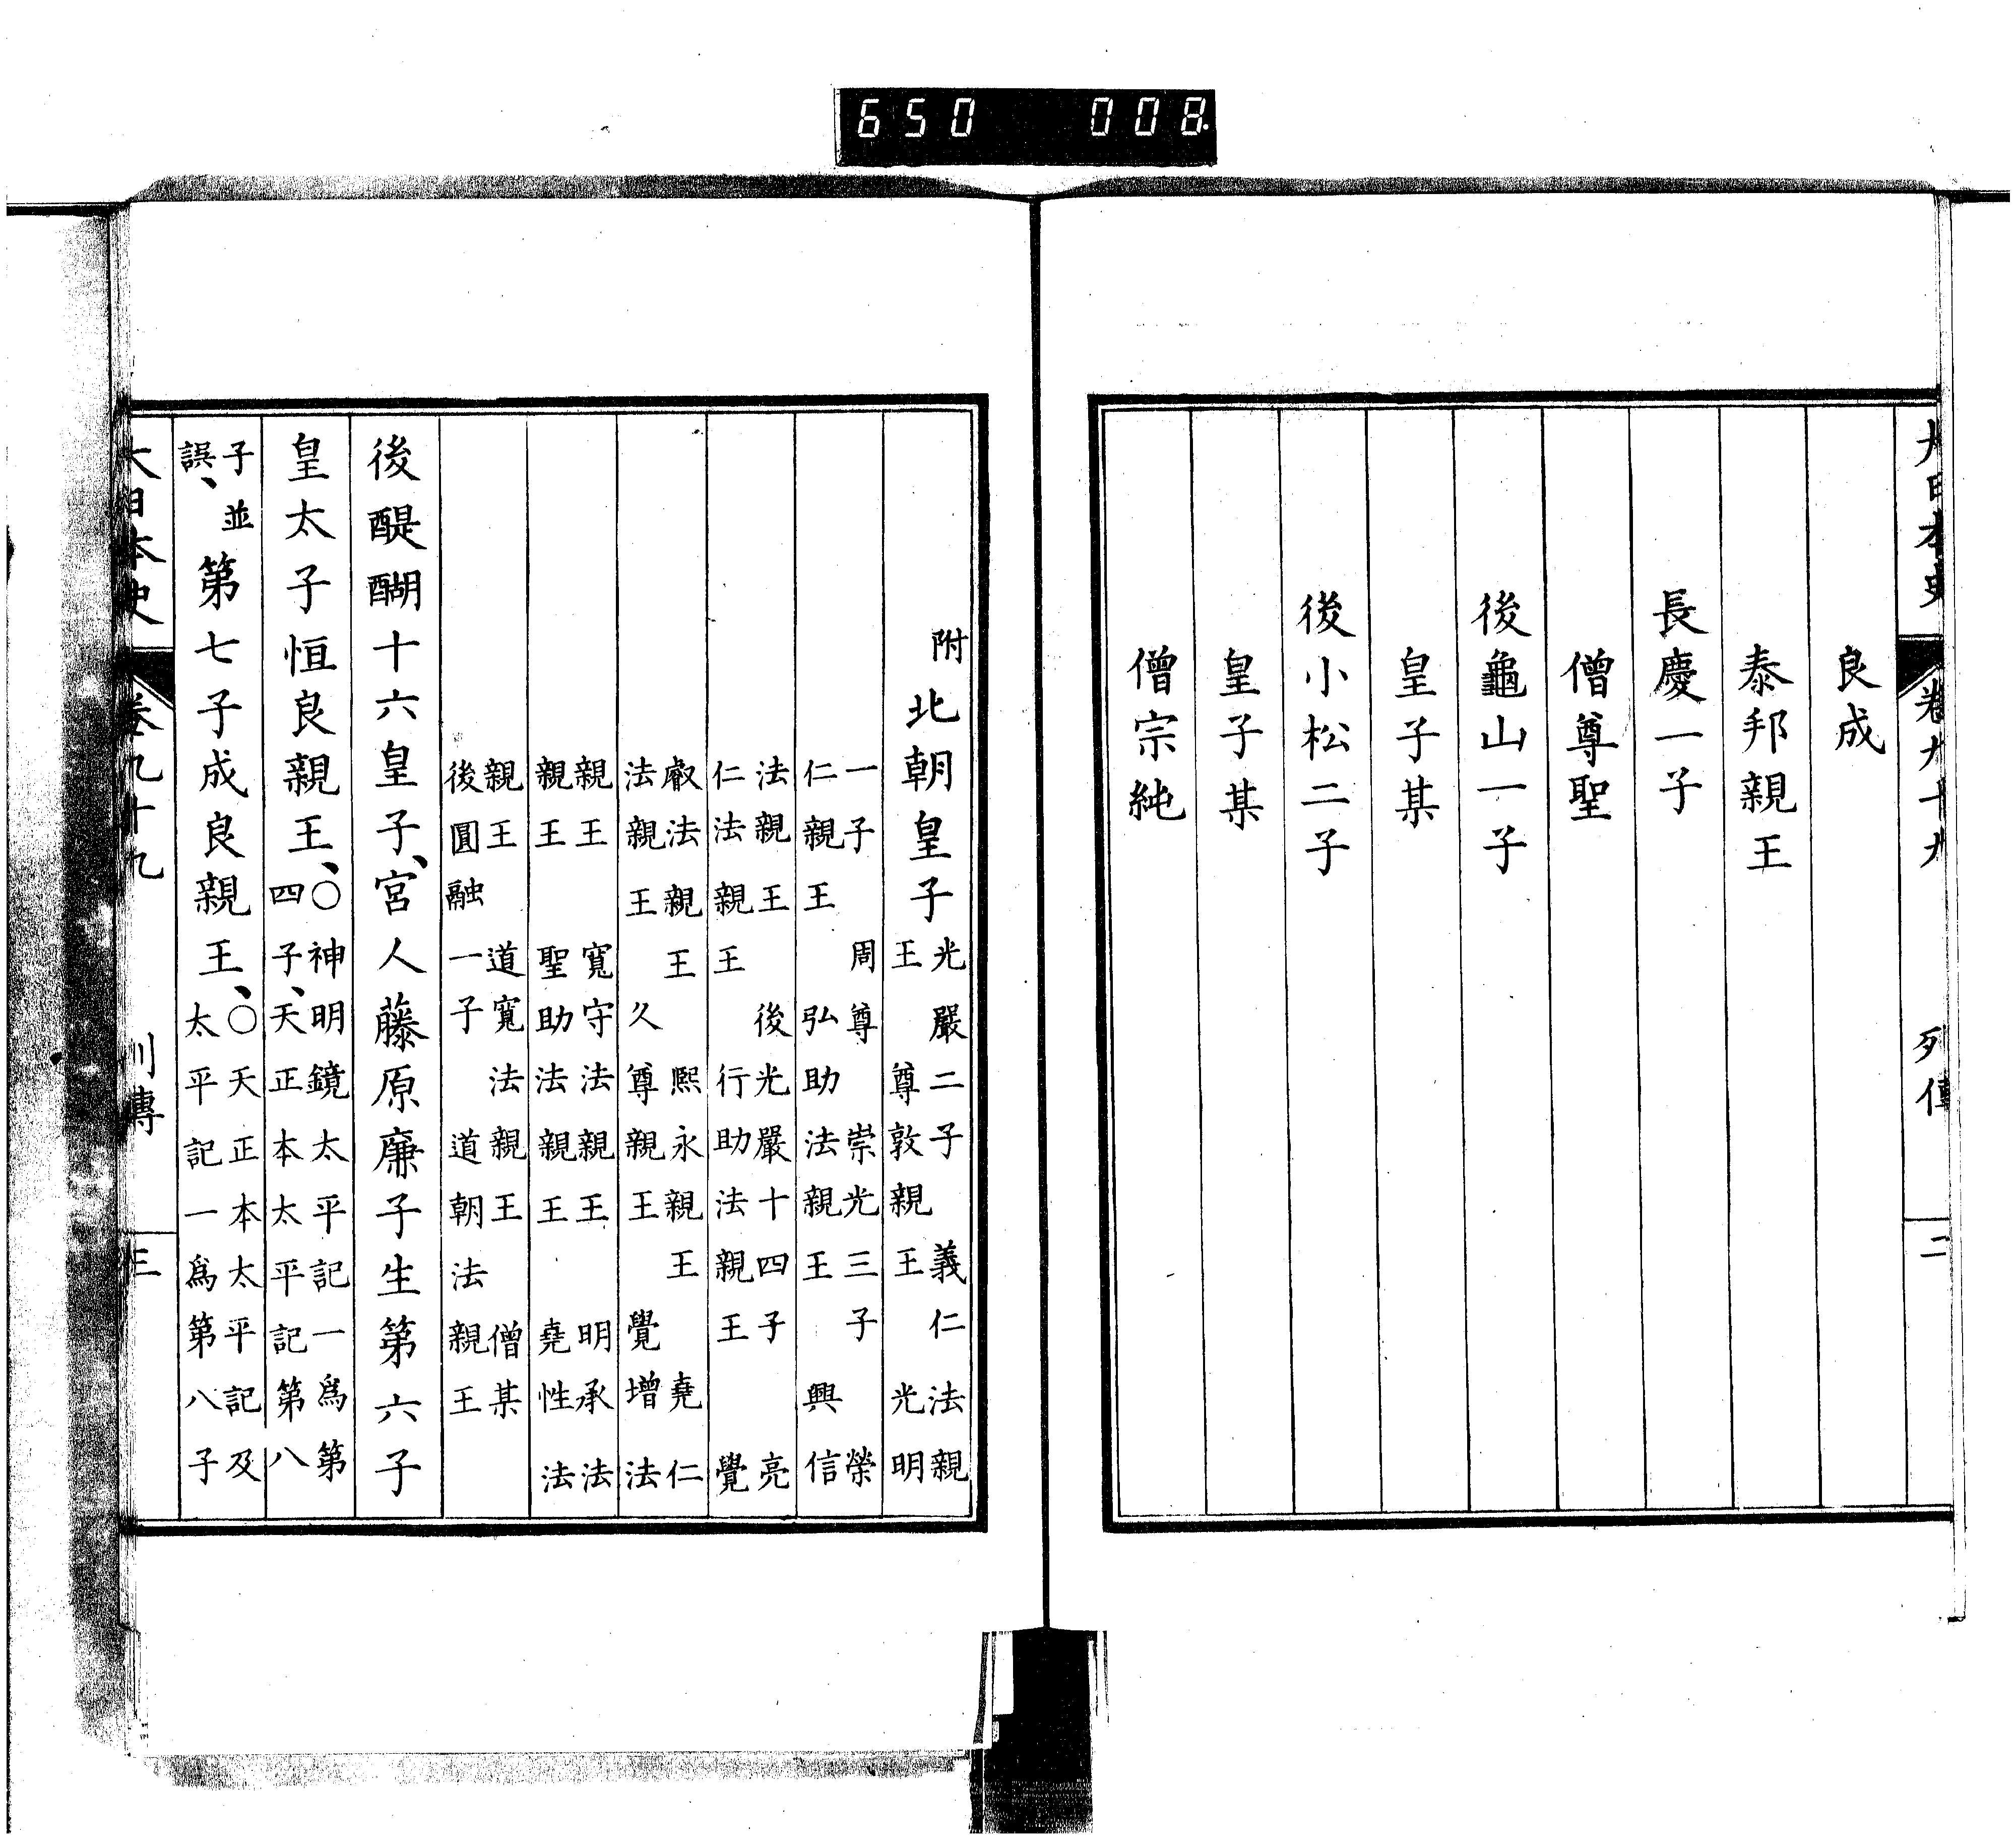 650 008.
大日本史 卷九十九 列傳 二
良成
泰邦親王
長慶一子
僧尊聖
後龜山一子
皇子某
後小松二子
皇子某
僧宗純
附北朝皇子
光嚴二子 義仁法親
王 尊敦親王 光明
一子 周尊 崇光三子 榮
仁親王 弘助法親王 興信
法親王 後光嚴十四子 亮
仁法親王 行助法親王 覺
叡法親王 熙永親王 堯仁
法親王 久尊親王 覺增法
親王 寬守法親王 明承法
親王 聖助法親王 堯性法
親王 道寬法親王 僧某
後圓融一子 道朝法親王
後醍醐十六皇子、宮人藤原廉子生第六子
皇太子恒良親王、
○神明鏡太平記一爲第
四子、天正本太平記第八
子並
誤、
第七子成良親王、
○天正本太平記及
太平記一爲第八子
大日本史 卷九十九 列傳 三